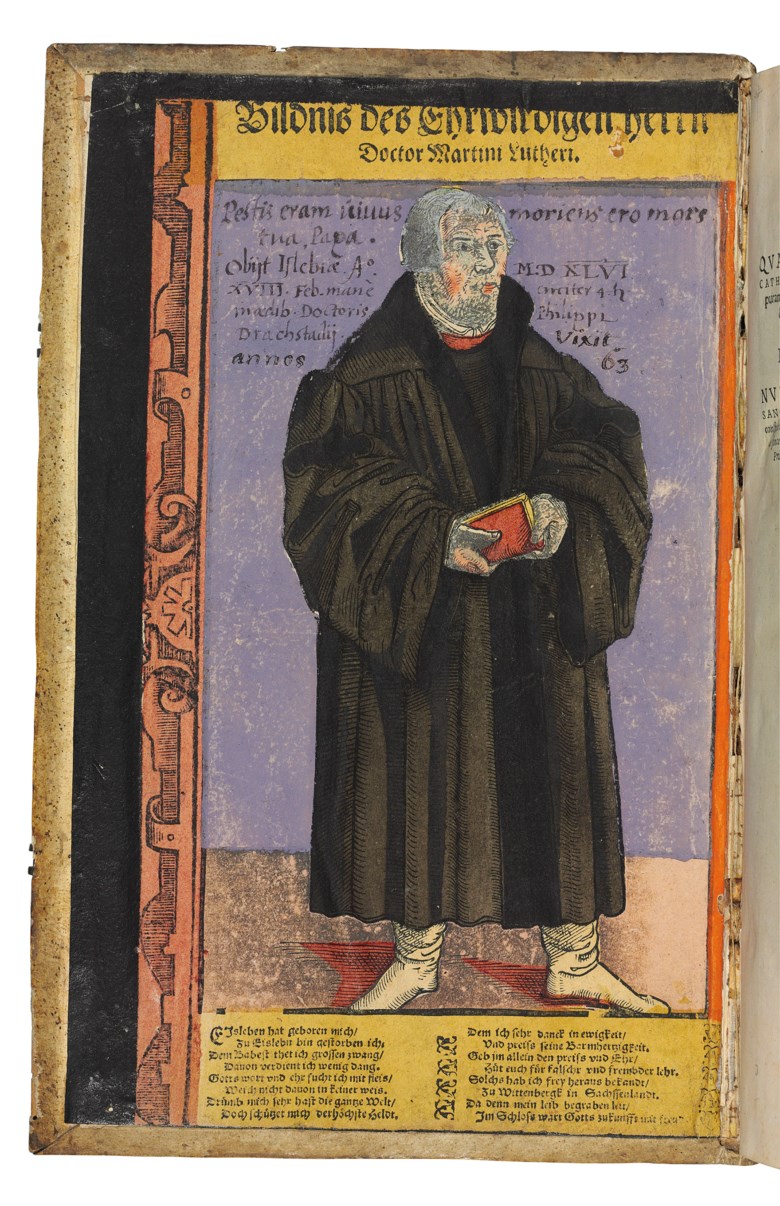 Bildnis des Ehrwirdigen Herrn
Doctor Martini Lutheri.
Pestis eram uiuus moriens ero mors
tua, Papa.
Obijt Islebiæ. A° M.D XLVI
XVIII. Feb. mane circiter 4 h
in ædib. Doctoris Philippi
Drachstadij Vixit
annos 63
EIsleben hat geboren mich/
Zu Eislebn bin gestorben ich.
Dem Babest thet ich grossen zwang/
Dauon verdient ich wenig dang.
Gotts wort vnd ehr sucht ich mit fleis/
Weich nicht dauon in keiner weis.
Drümb mich sehr hast die gantze Welt/
Doch schützet mich der höchste Heldt.
Dem ich sehr danck in ewigkeit/
Vnd preiss seine Barmhertzigkeit.
Geb jm allein den preiss vnd Ehr/
Hüt euch für falscher vnd frembder lehr.
Solchs hab ich frey heraus bekandt/
Zu Wittenbergk in Sachssenlandt.
Da denn mein leib begraben leit/
Im Schloss wart Gotts zukunfft mit
QVA
CATH
NV
SAN